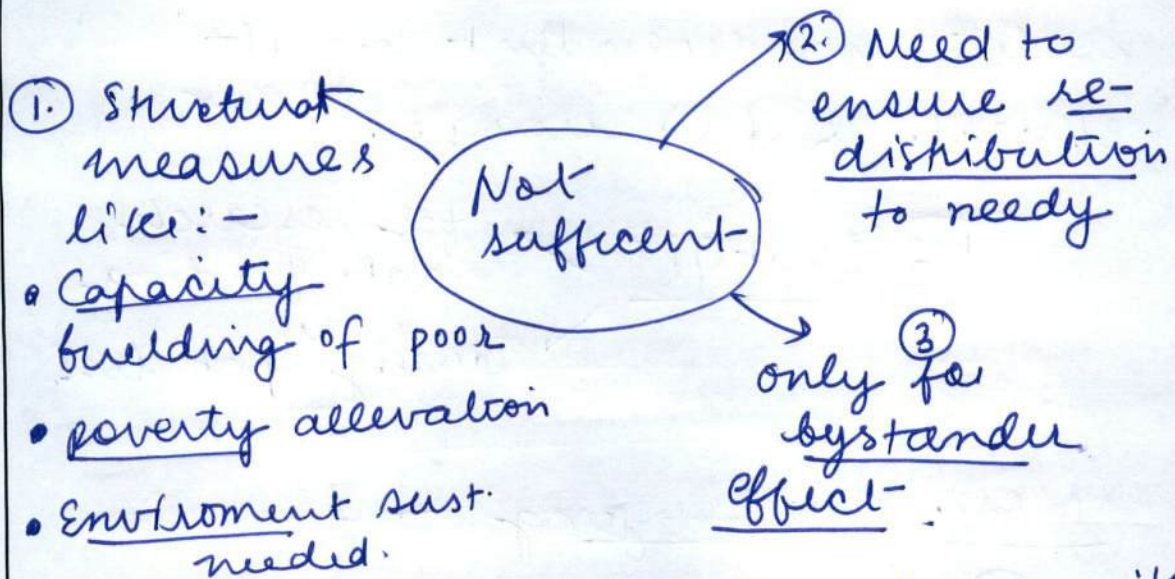 Not
sufficent
① Structural
measures
like:-
• Capacity
building of poor
• poverty allevation
• Enviroment sust.
needed.
② Need to
ensure re-
distribution
to needy
③
only for
bystander
effect.